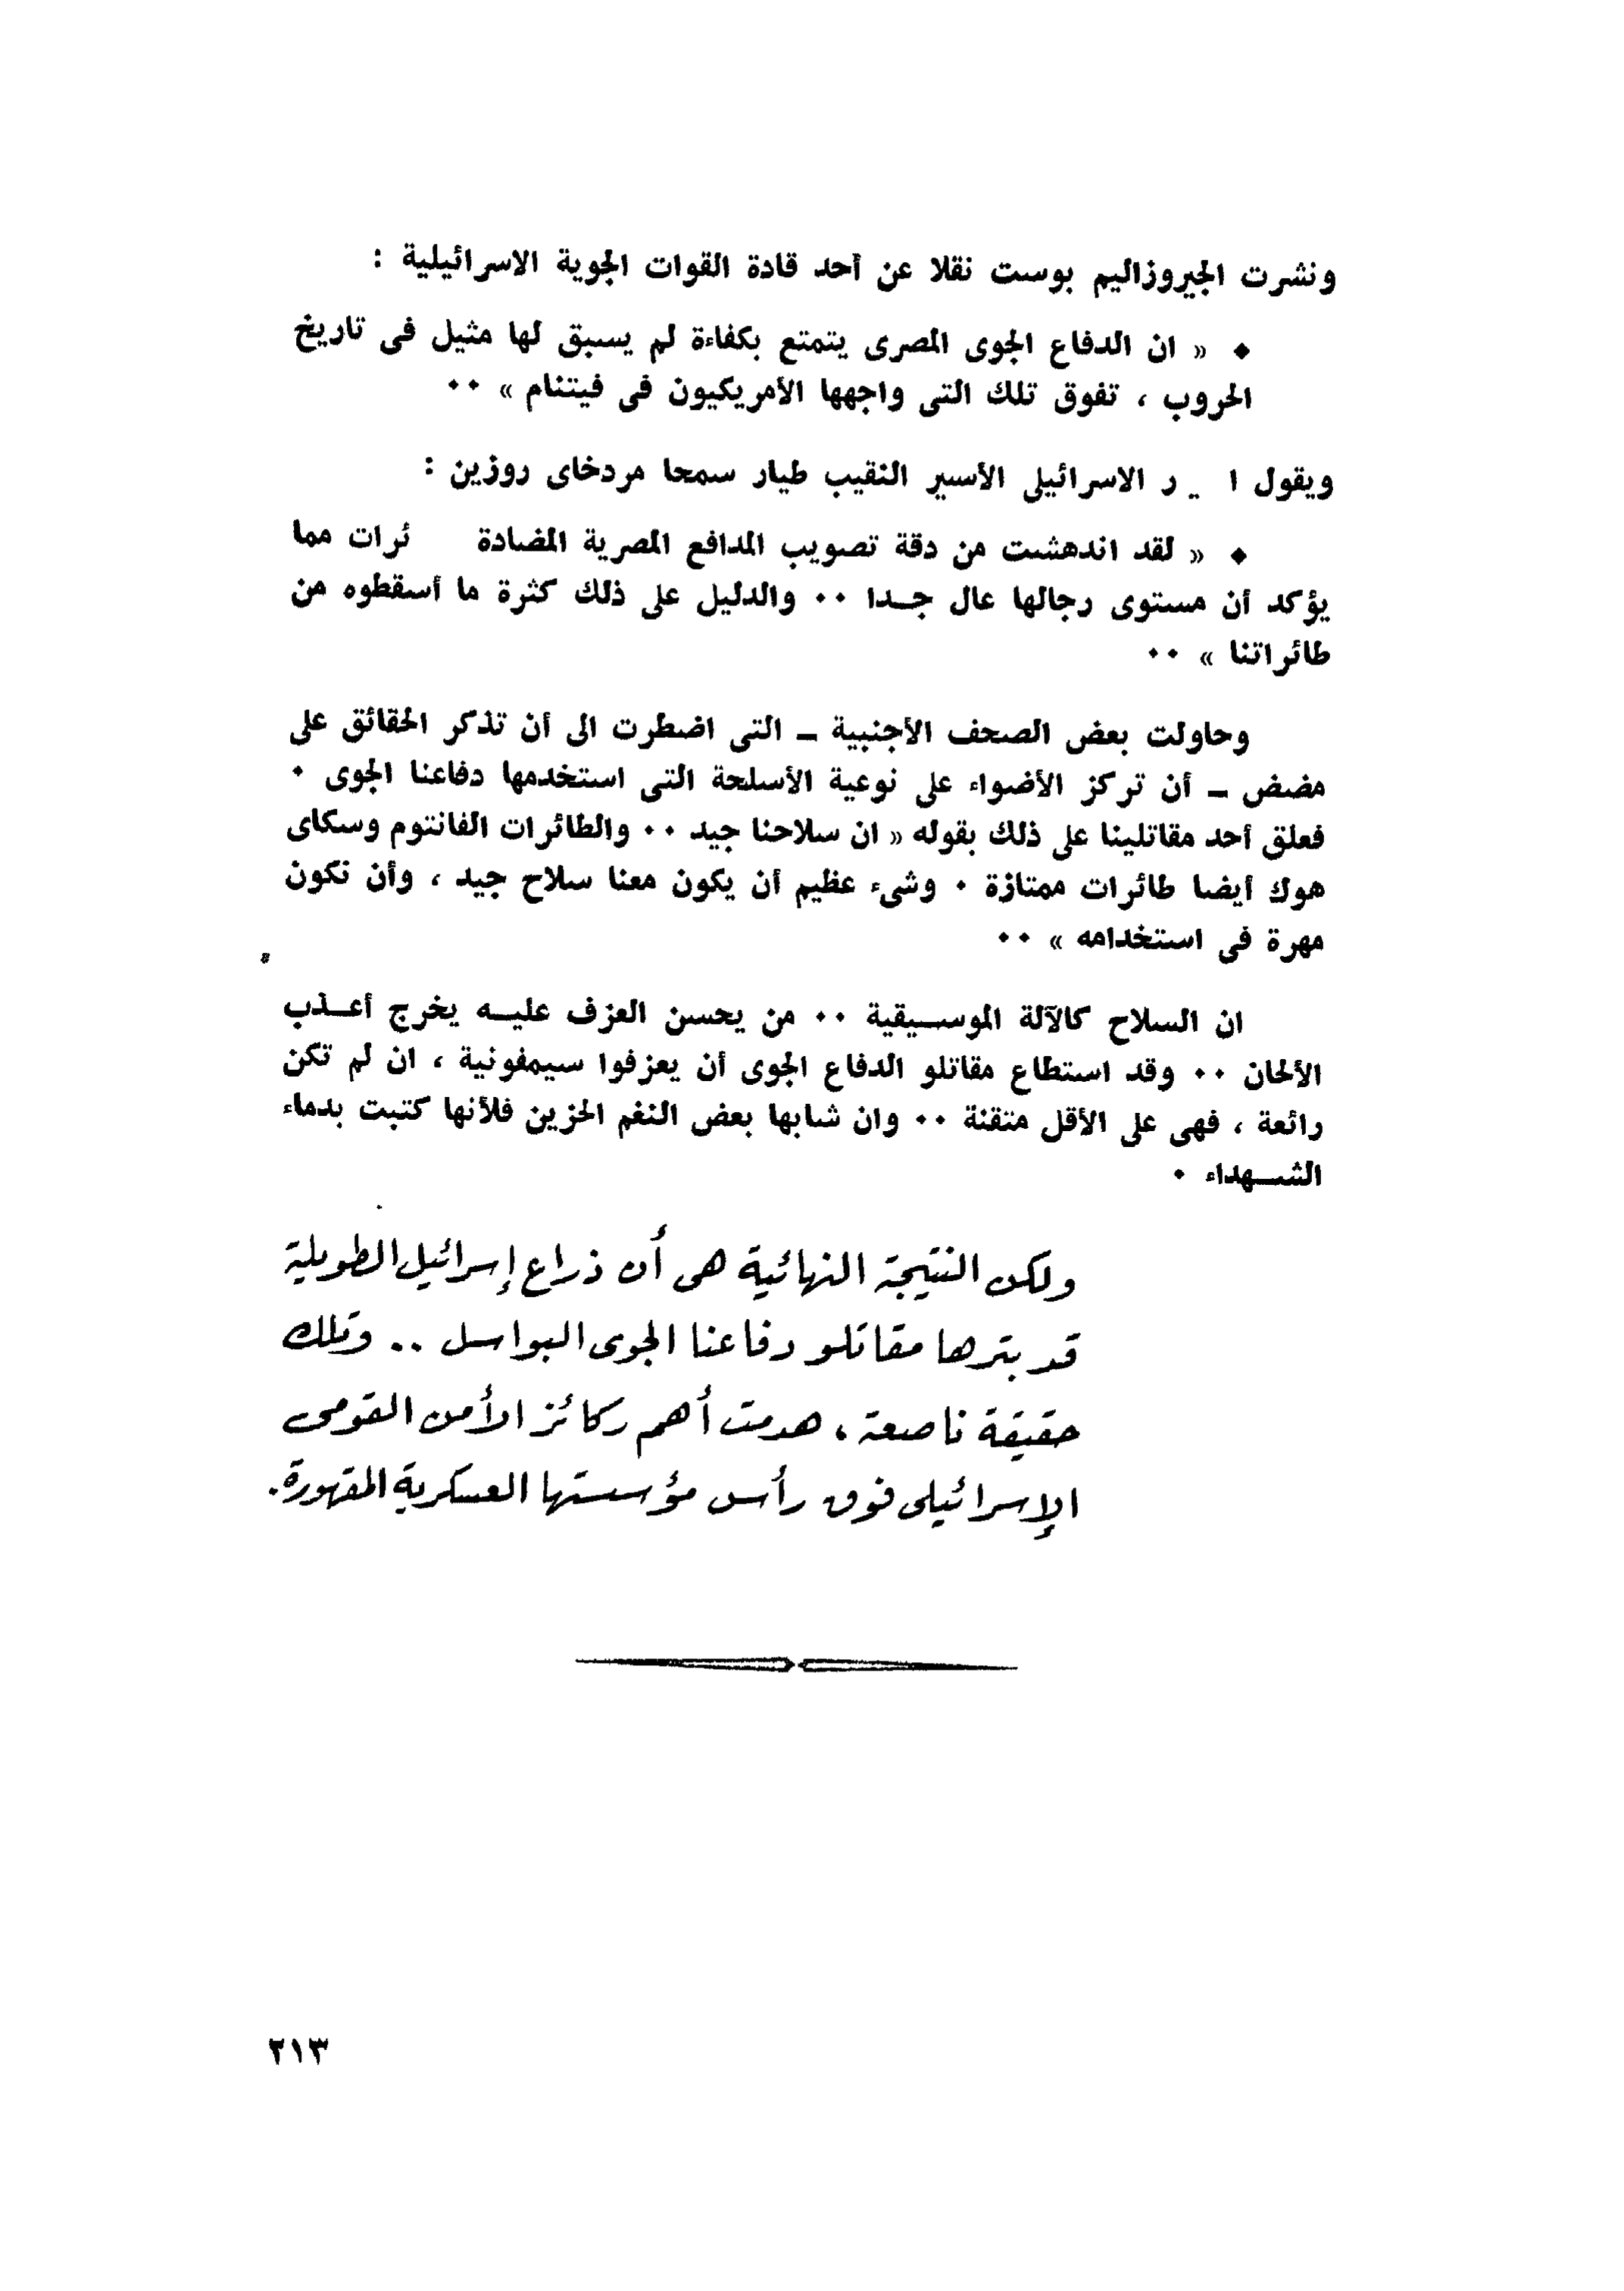 ونشرت الجيروزاليم بوست نقلا عن أحد قادة القوات الجوية الاسرائيلية :
◆ « ان الدفاع الجوى المصرى يتمتع بكفاءة لم يسبق لها مثيل فى تاريخ
الحروب ، تفوق تلك التى واجهها الأمريكيون فى فيتنام » ٠٠
ويقول ا ر الاسرائيلى الأسير النقيب طيار سمحا مردخاى روزين :
◆ « لقد اندهشت من دقة تصويب المدافع المصرية المضادة ئرات مما
يؤكد أن مستوى رجالها عال جـدا ٠٠ والدليل على ذلك كثرة ما أسقطوه من
طائراتنا » ٠٠
وحاولت بعض الصحف الأجنبية ــ التى اضطرت الى أن تذكر الحقائق على
مضض ــ أن تركز الأضواء على نوعية الأسلحة التى استخدمها دفاعنا الجوى ٠
فعلق أحد مقاتلينا على ذلك بقوله « ان سلاحنا جيد ٠٠ والطائرات الفانتوم وسكاى
هوك أيضا طائرات ممتازة ٠ وشىء عظيم أن يكون معنا سلاح جيد ، وأن نكون
مهرة فى استخدامه » ٠٠
ان السلاح كالآلة الموسـيقية ٠٠ من يحسن العزف عليـه يخرج أعـذب
الألحان ٠٠ وقد استطاع مقاتلو الدفاع الجوى أن يعزفوا سيمفونية ، ان لم تكن
رائعة ، فهى على الأقل متقنة ٠٠ وان شابها بعض النغم الحزين فلأنها كتبت بدماء
الشـهداء ٠
ولكن النتيجة النهائية هى أن ذراع إسرائيل الطويلة
قد بترها مقاتلو دفاعنا الجوى البواسل .. وتلك
حقيقة ناصعة ، هدمت أهم ركائز الأمن القومى
الإسرائيلى فوق رأس مؤسستها العسكرية المقهورة.
٢١٣